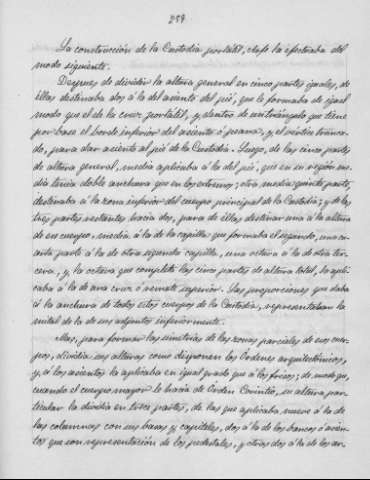 259
La construcción de la Custodia portátil, Arfe la efectuaba del
modo siguiente.
Despues de dividir la altura general en cinco partes iguales, de
ellas destinaba dos á la del asiento del pié, que le formaba de igual
modo que el de la cruz portátil, y dentro de un triángulo que tiene
por base el borde inferior del asiento ó peana, y el vertice trunca-
do, para dar asiento al pié de la Custodia. Luego, de las cinco partes
de altura general, media aplicaba á la del pié, que en su region me-
dia tenia doble anchura que en los extremos; otra media quinta parte,
destinaba á la zona inferior del cuerpo principal de la Custodia; y de las
tres partes restantes hacia dos, para de ellas destinar una á la altura
de su cuerpo, media á la de la capilla que formaba el segundo, una cu-
arta parte á la de otra segunda capilla, una octava á la de otra ter-
cera, y la octava que completa las cinco partes de altura total, la apli-
caba á la de una cruz ó remate superior. Las proporciones que daba
á la anchura de todos estos cuerpos de la Custodia, representaban la
mitad de la de sus adjuntos inferiormente.
Mas, para formar las simetrías de las zonas parciales de sus cuer-
pos, dividia sus alturas como disponen los Ordenes arquitectónicos,
y, á los asientos la aplicaba en igual grado que á los frisos; de modo que,
cuando el cuerpo mayor le hacia de Orden Corintio, su altura par-
ticular la dividia en trece partes, de las que aplicaba nueve á la de
las columnas con sus basas y capiteles, dos á la de los bancos ó asien-
tos que son representación de los pedestales, y otras dos á la de los ar-